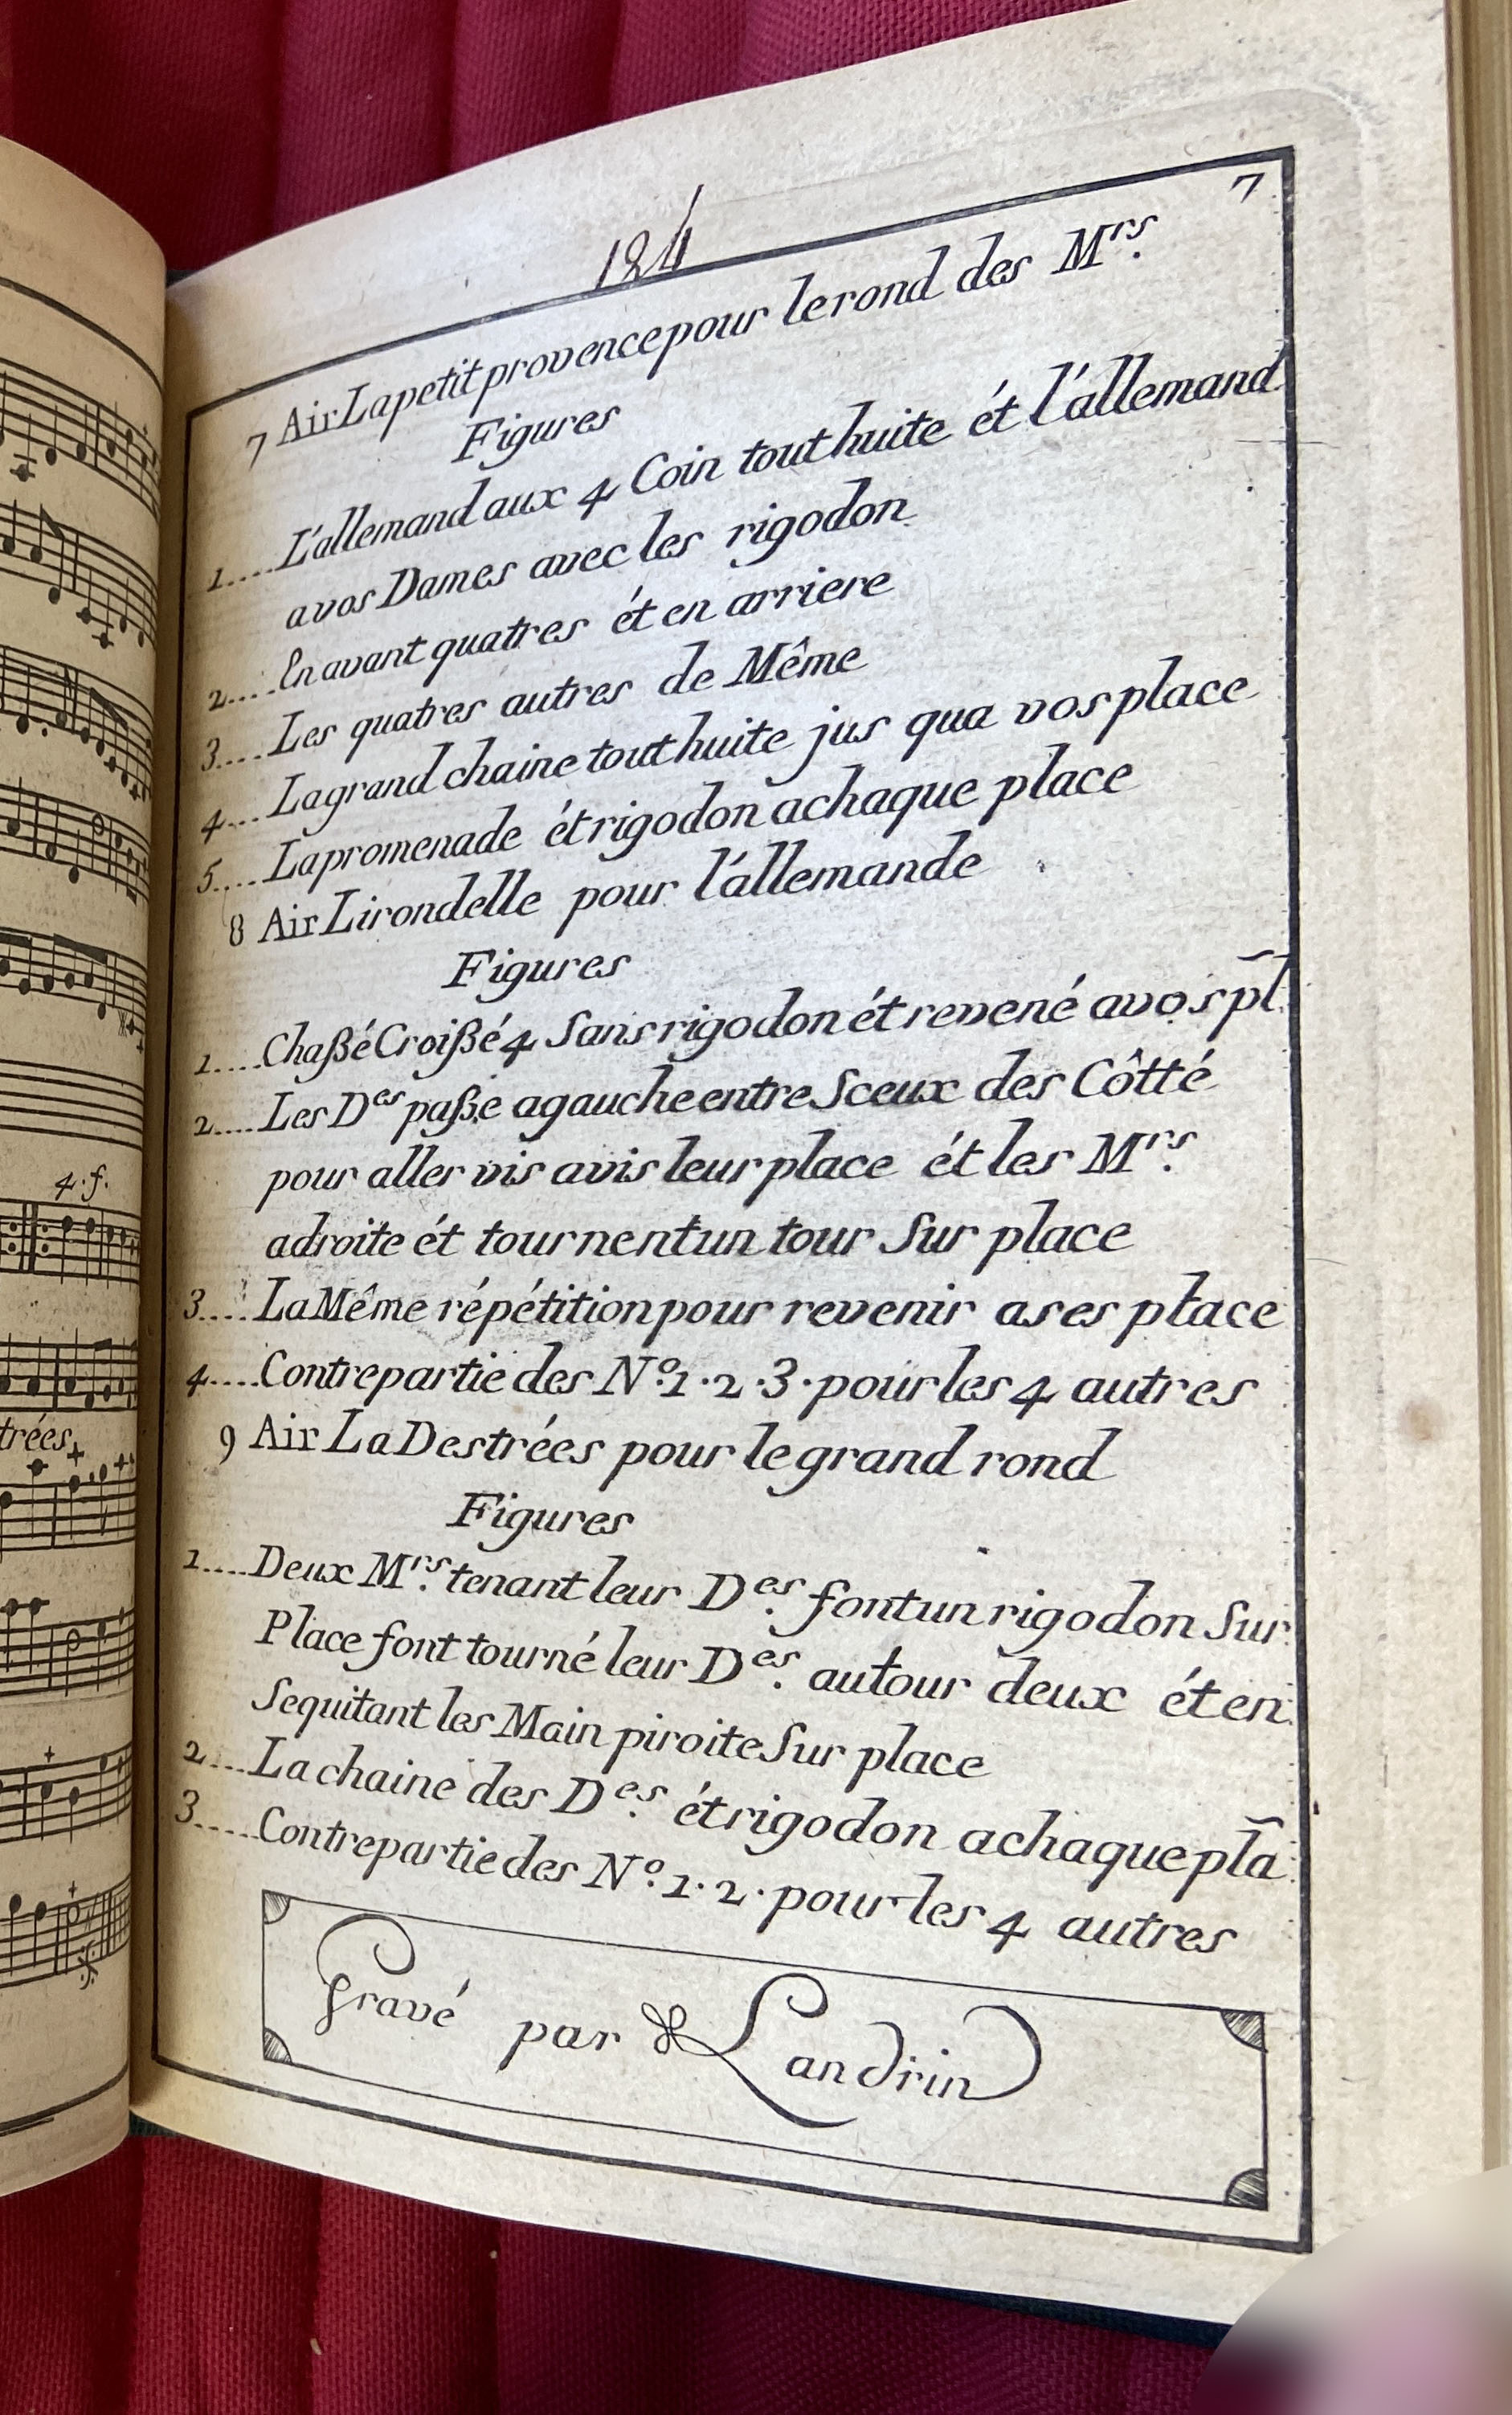 184
7
7 Air La petit provence pour le rond des Mrs.
Figures
1.... L'allemand aux 4 Coin tout huite ét l'allemand
a vos Dames avec les rigodon
2.... En avant quatres ét en arriere
3.... Les quatres autres de Même
4.... La grand chaine tout huite jus qua vos place
5.... La promenade ét rigodon a chaque place
8 Air Lirondelle pour l'allemande
Figures
1.... Chaßé Croißé 4 Sans rigodon ét revené a vos pl.
2.... Les Des paße a gauche entre Sceux des Côtté
pour aller vis a vis leur place ét les Mrs.
a droite ét tournent un tour Sur place
3.... La Même répétition pour revenir a ses place
4.... Contrepartie des No. 1. 2. 3. pour les 4 autres
9 Air La Destrées pour le grand rond
Figures
1.... Deux Mrs. tenant leur Des. font un rigodon Sur
Place font tourné leur Des. autour deux ét en
Sequitant les Main piroite Sur place
2.... La chaine des Des. ét rigodon a chaque pla
3.... Contrepartie des No. 1. 2. pour les 4 autres
Gravé par Landrin
4. f.
trées